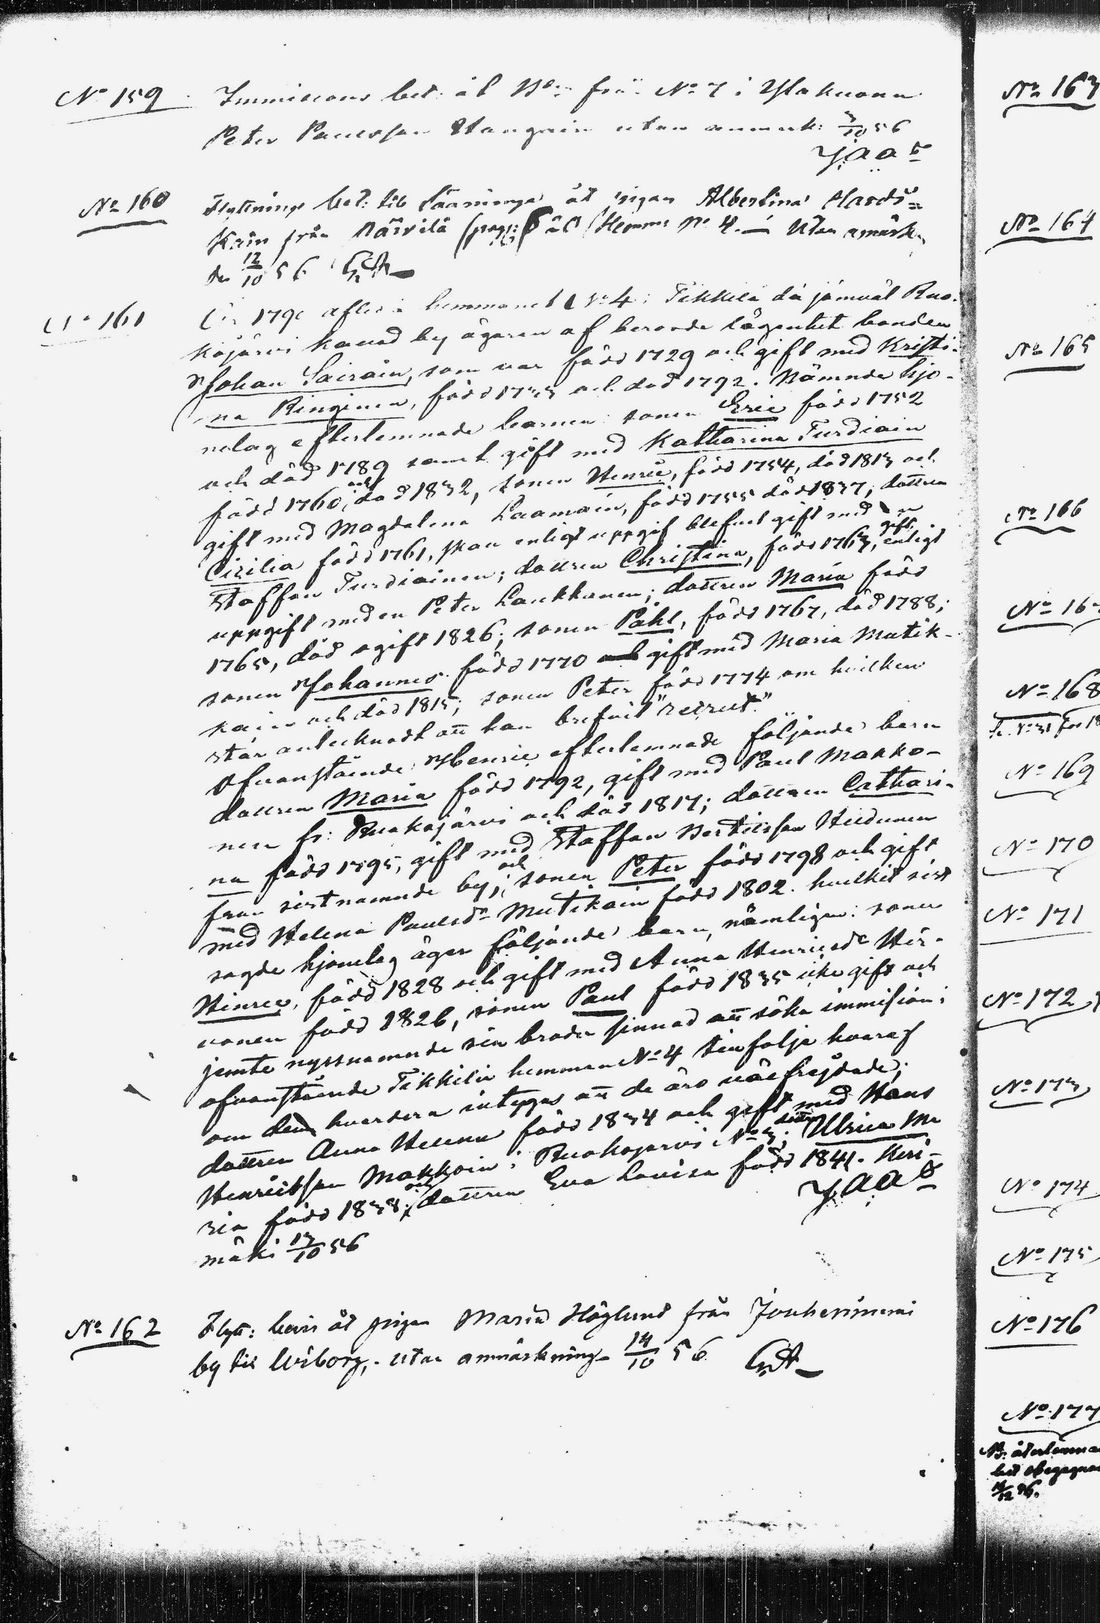 No 159 Immissions bet: åt från No 7 i
Peter Paulsson utan anmärk: 3/10 56
No 160 Flyttnings bet: till åt pigan Albertina
från Närvilä Hemm: No 4. Utan anmärk.
den 12/10 56
No 161 År 179 hemmanet No 4 i Tikkilä då jämväl Ruo-
kojärvi kallad by ägaren af berörde lägenhet bonden
Johan Sairain, som var född 1729 och gift med Kristi-
na Ringinen, född och död 1792. Nämnde hjo-
nelag efterlemnade barnen: sonen Eric född 1752
och död 1789 samt gift med Katharina Turdiain
född 1760, och död 1832, sonen Henric, född 1754, död 1813 och
gift med Magdalena Laamain, född 1755 död 1837; dottren
Cicilia född 1761, skan enligt uppgif blefvet gift med
Staffan Turdiainen; dottren Christina, född 1763, gift enligt
uppgift med en Peter Laukkanen; dottren Maria född
1765, död ogift 1826; sonen Påhl, född 1767, död 1788;
sonen Johannes född 1770 gift med Maria Mutik-
kain och död 1815; sonen Peter född 1774 om hvilken
står antecknadt att han blefvit "recrut".
Ofvanstående Henric efterlemnade följande barn
dottren Maria född 1792, gift med Paul Makko-
nen fr: Ruokojärvi och död 1817; dottren Cathari-
na född 1795, gift med Staffan Bertilsson
från sistnämnde by; och sonen Peter född 1798 och gift
med Helena Paulsdr Mutikain född 1802. hvilket sist
sagde hjonelag äger följande barn, nämligen: sonen
Hinric, född 1828 och gift med Anna Henricsdr Hir-
vonen född 1826, sonen Paul född 1835 icke gift och
jemte nyssnämnde sin broder sinnad att söka immission i
ofvanstående Tikkilä hemman No 4 till följe hvaraf
om dem hvardera intygas att de äro välfrejdade;
dottren Anna Helena född 1834 och gift med Hans
Henricsson Makkoin i Ruokojärvi No 3; Ulrica Ma
ria född 1838; och dottren Eva Lovisa född 1841. Keri-
mäki 13/10 56
No 162 Flytt: bevis åt pigan Maria Höglund från Jouhenniemi
by till Wiborg, utan anmärkning 14/10 56
No 163
No 164
No 165
No 166
No 16
No 168
No 169
No 170
No 171
No 172
No 173
No 174
No 175
No 176
No 177